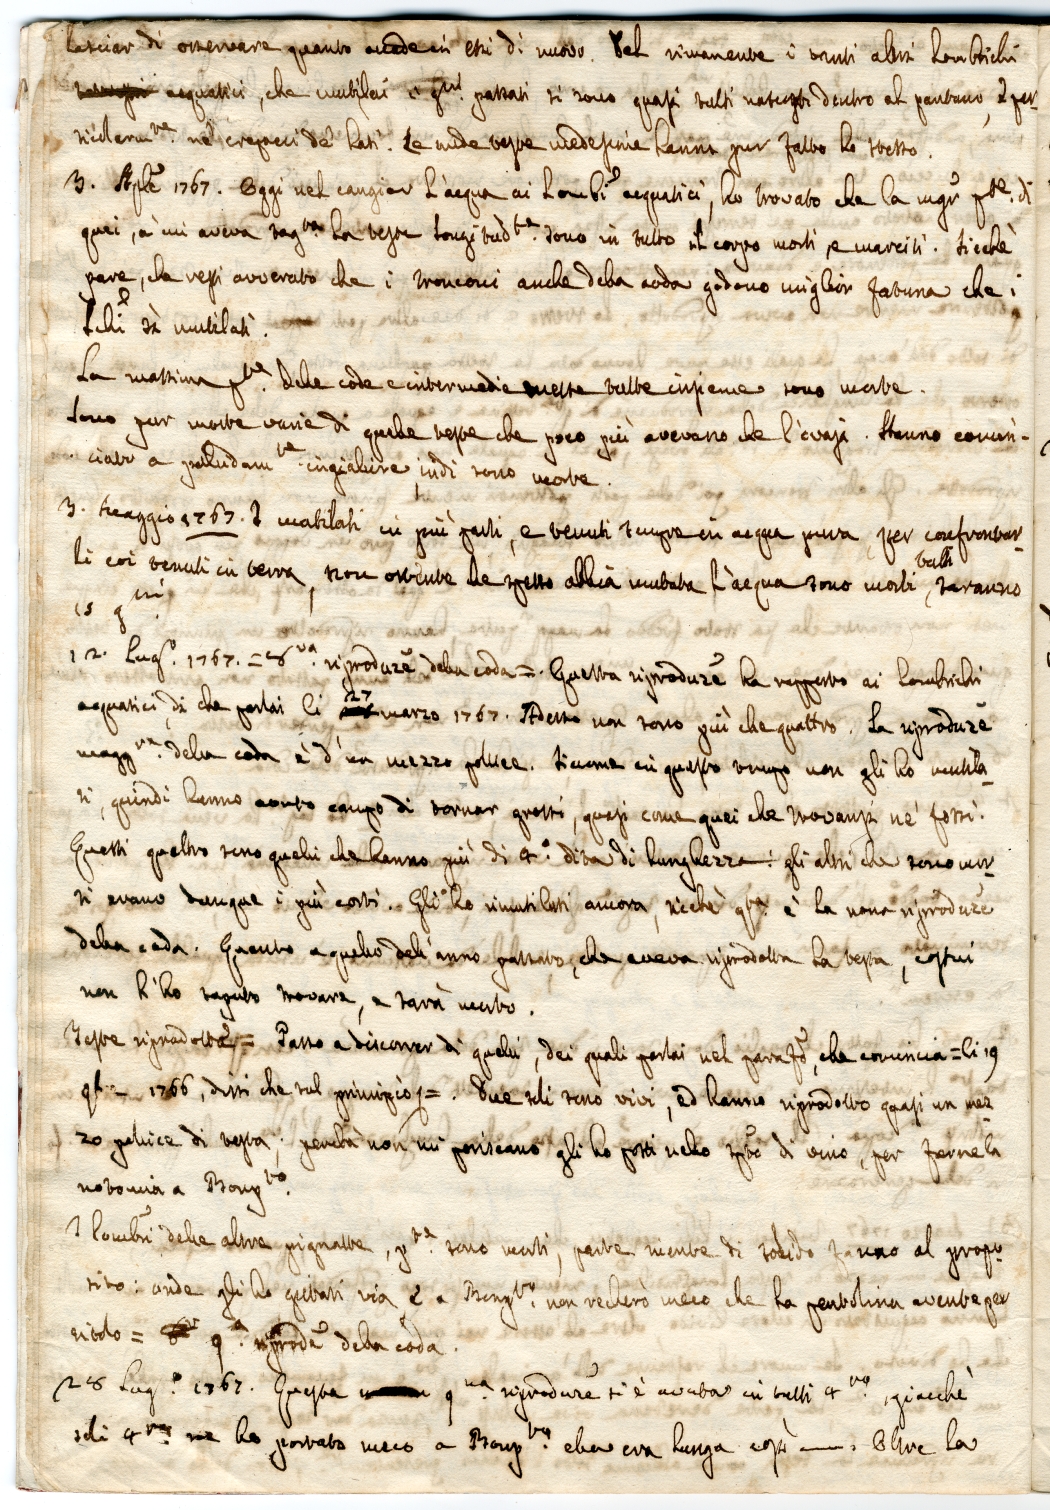 lasciar di osservare quanto accade in essi di nuovo. Del rimanente i venti altri Lombrichi
acquatici, che mutilai i gni. passati si sono quasi tutti nascosti dentro al pantano, e par-
ticolarmte. ne' crepacci de' lati. Le nude teste medesime hanno pur fatto lo stesso.
3. Aple 1767. Oggi nel cangiar l'acqua ai Lombi acquatici, ho trovato che la mgr pte. di
quei, a' cui aveva tagta. la testa longitudte. sono in tutto il corpo morti, e marciti. Sicchè
pare, che resti avverato che i tronconi anche della coda godano miglior fortuna che i
Lchi sì mutilati.
La massima pte. delle code e intermedie messe tutte insieme sono morte.
Sono pur morte varie di quelle teste che poco più avevano che l'ovaja. Hanno comin-
ciato a ingiallire, indi sono morte.
3. Maggio 1767. I mutilati in più parti, e tenuti sempre in acqua pura, per confrontar-
li coi tenuti in terra, non ostante che spesso abbia mutata l'acqua sono morti tutti, saranno
15 gni.
12. Lugo. 1767. = 8va. riproduze della coda =. Questa riproduze ha rapporto ai Lombrichi
acquatici, di che parlai li 27 marzo 1767. Adesso non sono più che quattro. La riproduze
maggre. della coda è d'un mezzo pollice. Siccome in questo tempo non gli ho mutila-
ti, quindi hanno avuto campo di tornar grossi, quasi come quei che trovansi ne' fossi.
Questi quattro sono quelli che hanno più di 4o. dita di lunghezza: gli altri che sono mor-
ti erano dunque i più corti. Gli ho rimutilati ancora, sicchè qta. è la nona riproduze
della coda. Quanto a quello dell'anno passato, che aveva riprodotta la testa, costui
non l'ho saputo trovare, e sarà morto.
Teste riprodotte = Passo a discorrer di quelli, dei quali parlai nel parafo, che comincia = li 19
1766, dissi che sul principio = . Due soli sono vivi, ed hanno riprodotto quasi un mez-
zo pollice di testa: perchè non mi periscano gli ho posti nello spto di vino, per farne la
notomia a
I Lombri delle altre pignatte, pte. sono morti, parte niente di solido fanno al propo-
sito: onde gli ho gettati via e a non recherò meco che la pentolina avente per
titolo = 9a riproduz della coda.
28 Lugo. 1767. Questa 9na. riproduze si è avuta in tutti 4ro, giacchè
soli 4ro ne ho portato meco a ella era lunga così ——. Oltre la